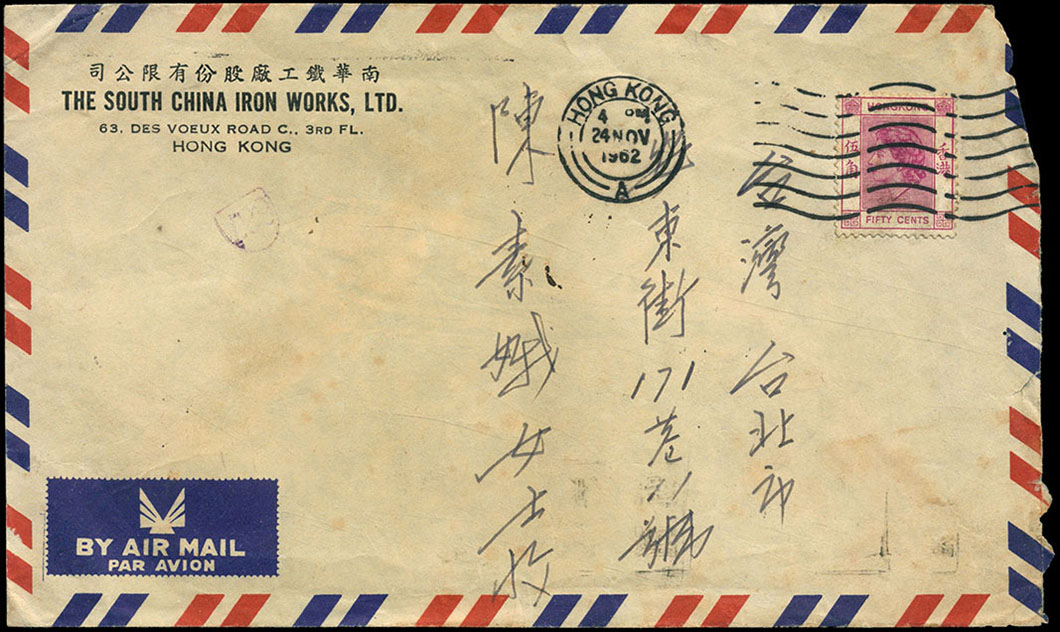 南華鐵工廠股份有限公司
THE SOUTH CHINA IRON WORKS, LTD.
63, DES VOEUX ROAD C., 3RD FL.
HONG KONG
HONG KONG
4 PM
24 NOV
1962
A
HONG KONG
香港
伍角
FIFTY CENTS
台灣台北市
東街171巷21號
陳素娥女士收
BY AIR MAIL
PAR AVION